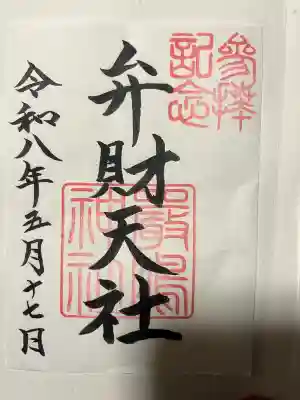 參拝
記念
弁財天社
嚴島
神社
令和八年五月十七日